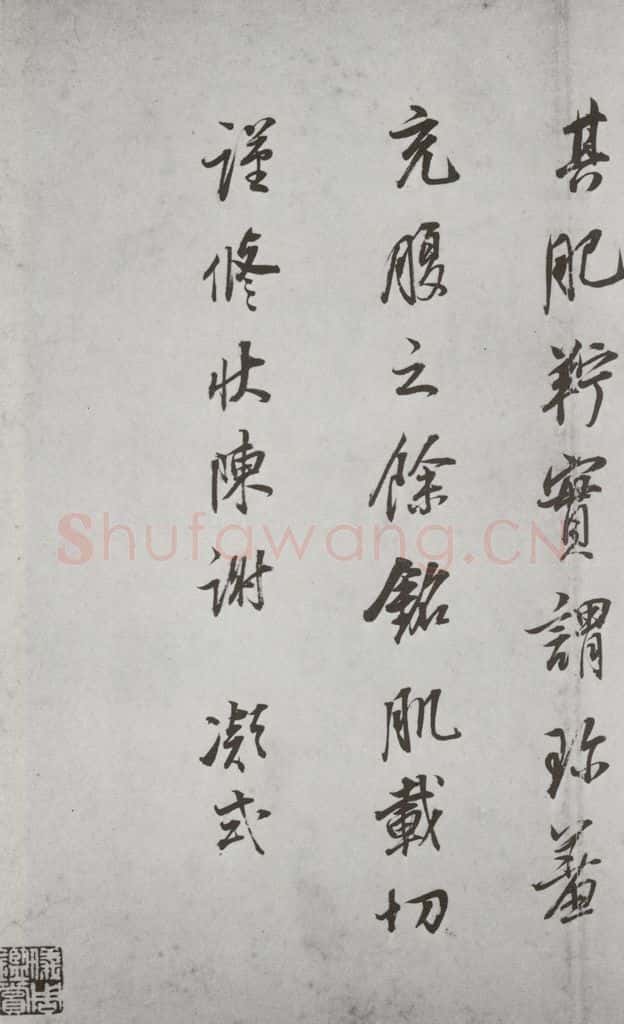 其肥羜實謂珍羞
充腹之餘銘肌載切
謹修状陳謝 凝式
Shufawang.CN